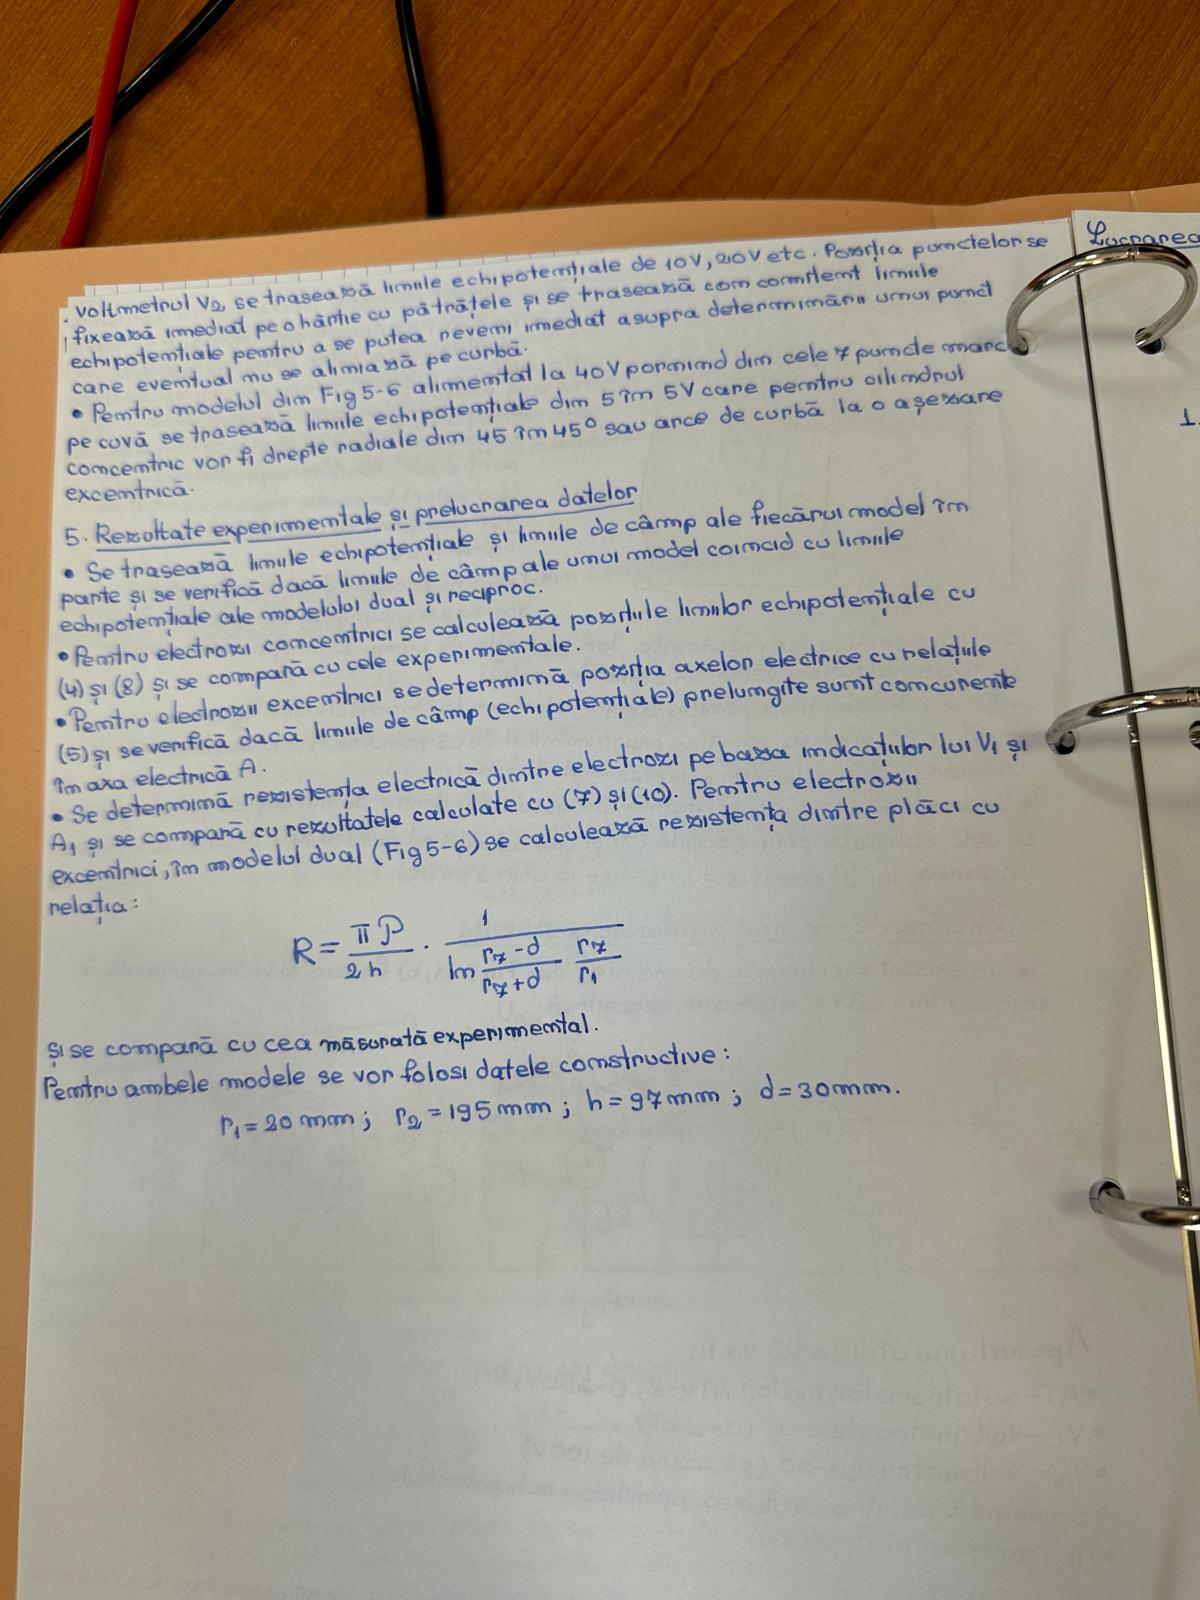 voltmetrul V2, se trasează liniile echipotențiale de 10V, 20V etc. Poziția punctelor se
fixează imediat pe o hârtie cu pătrățele și se trasează con comitent liniile
echipotențiale pentru a se putea reveni imediat asupra determinării unui punct
care eventual nu se aliniază pe curbă.
• Pentru modelul din Fig 5-6 alimentat la 40V pornind din cele 7 puncte marc
pe cuvă se trasează liniile echipotențiale din 5 în 5V care pentru cilindrul
concentric vor fi drepte radiale din 45 în 45° sau arce de curbă la o așezare
excentrică.
5. Rezultate experimentale și prelucrarea datelor
• Se trasează liniile echipotențiale și liniile de câmp ale fiecărui model în
parte și se verifică dacă liniile de câmp ale unui model coincid cu liniile
echipotențiale ale modelului dual și reciproc.
• Pentru electrozi concentrici se calculează pozițiile liniilor echipotențiale cu
(4) și (8) și se compară cu cele experimentale.
• Pentru electrozii excentrici se determină poziția axelor electrice cu relațiile
(5) și se verifică dacă liniile de câmp (echipotențiale) prelungite sunt concurente
în axa electrică A.
• Se determină rezistența electrică dintre electrozi pe baza indicațiilor lui V1 și
A1 și se compară cu rezultatele calculate cu (7) și (10). Pentru electrozii
excentrici, în modelul dual (Fig 5-6) se calculează rezistența dintre plăci cu
relația:
R = πρ / 2h · 1 / ln (r7 - d / r7 + d) (r7 / r1)
și se compară cu cea măsurată experimental.
Pentru ambele modele se vor folosi datele constructive:
r1 = 20 mm; r2 = 195 mm; h = 97 mm; d = 30 mm.
Lucrarea
1.